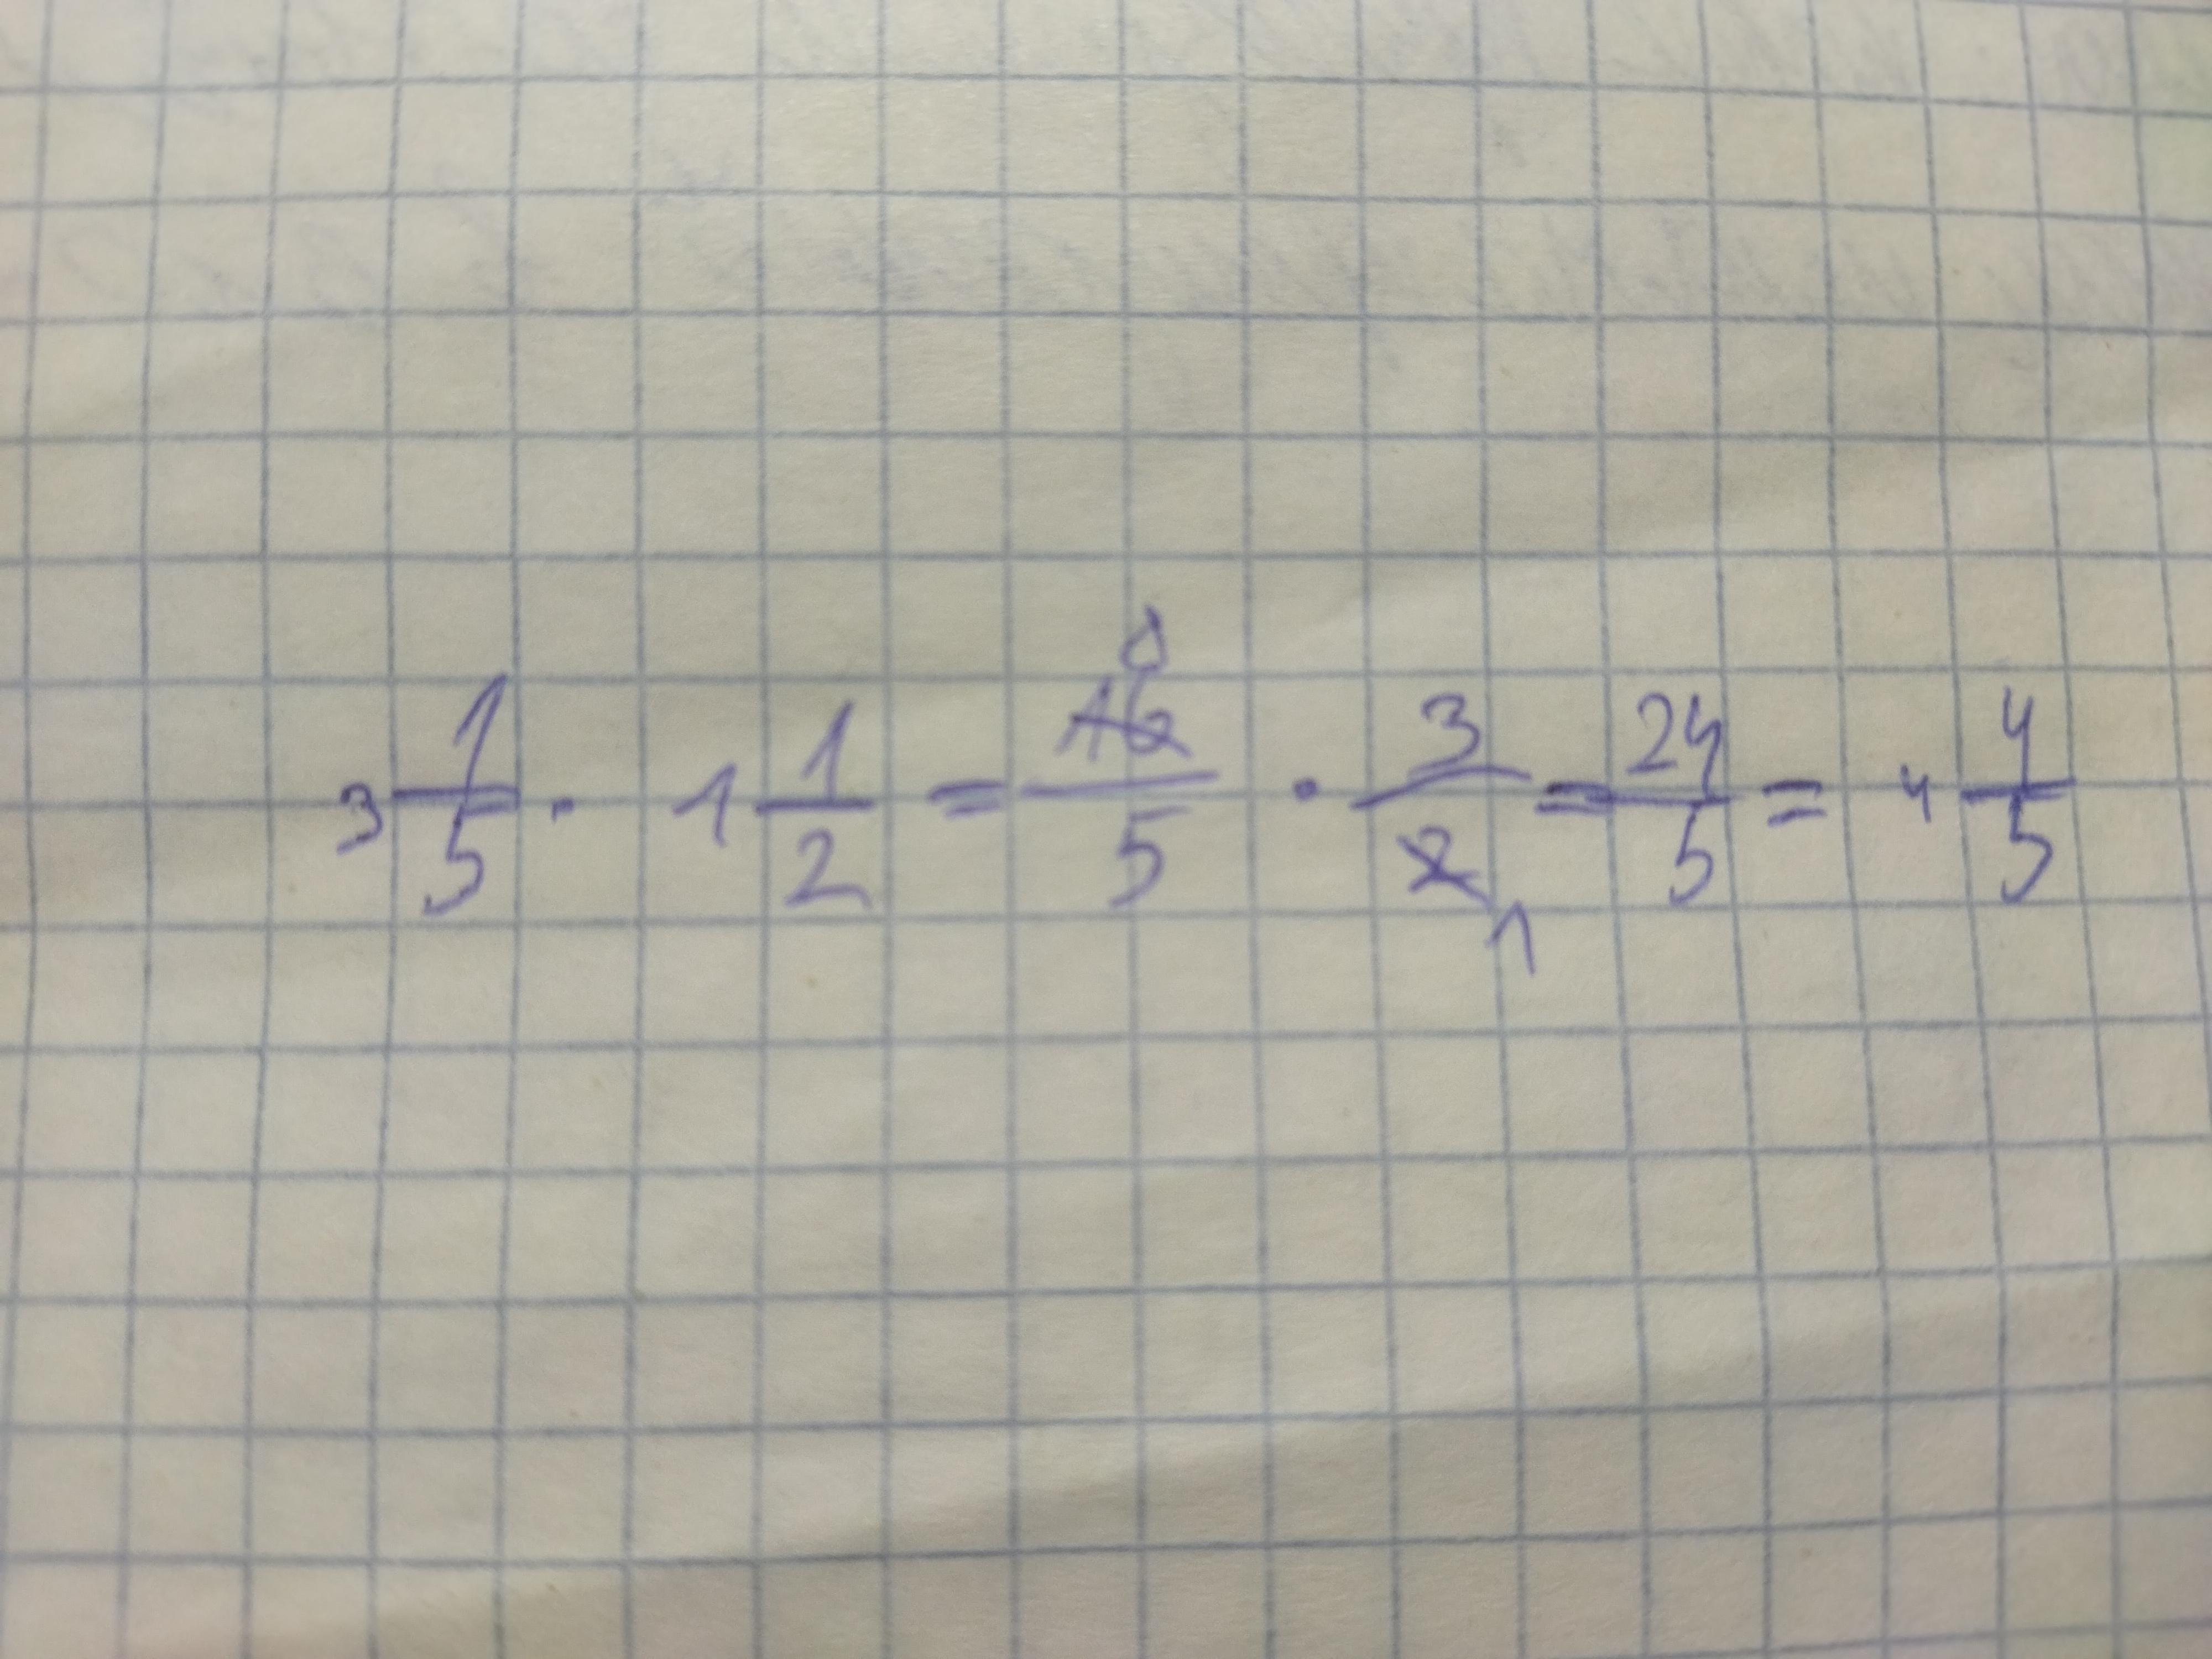 3 1/5 · 1 1/2 = 16/5 · 3/2 = 24/5 = 4 4/5